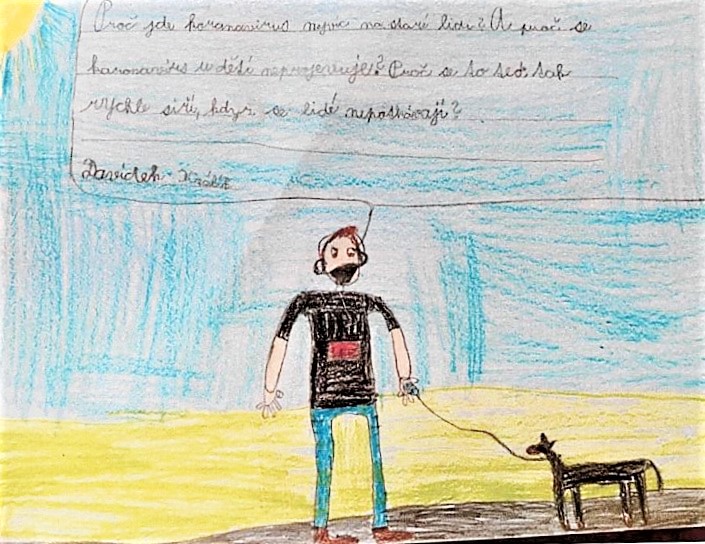 Proč jde koranavirus nejvíc na staré lidi? A proč se
koronavirus u dětí neprojevuje? Proč se to teď tak
rychle síří, když se lidé nepotkávají?
Davídek Králík